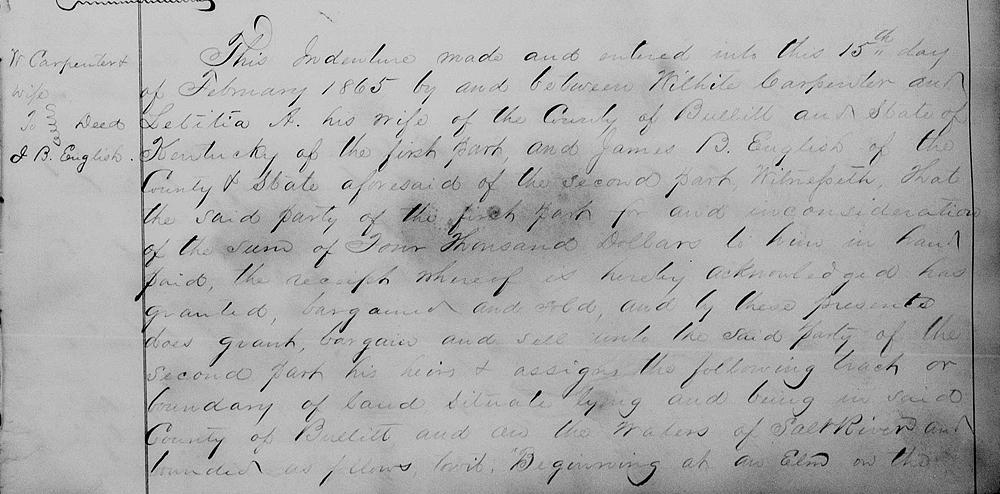 W Carpenter &
Wife
To Deed
J B. English.
This Indenture made and entered into this 15th day
of February 1865 by and between Wilhite Carpenter and
Letitia A. his wife of the County of Bullitt and State of
Kentucky of the first part and James B. English of the
County & State aforesaid of the second part, Witnesseth, That
the said party of the first part for and inconsideration
of the sum of Four Thousand Dollars to him in hand
paid, the receipt whereof is hereby acknowledged has
granted, bargained and sold, and by these presents
does grant, bargain and sell unto the said party of the
second part his heirs & assigns the following tract or
boundary of land situate lying and being in said
County of Bullitt and on the Waters of Salt River and
bounded as follows, towit. Beginning at an Elm on the